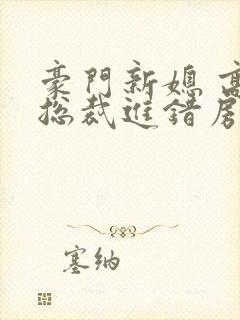 豪門新媳 高
総裁進錯房
塞納